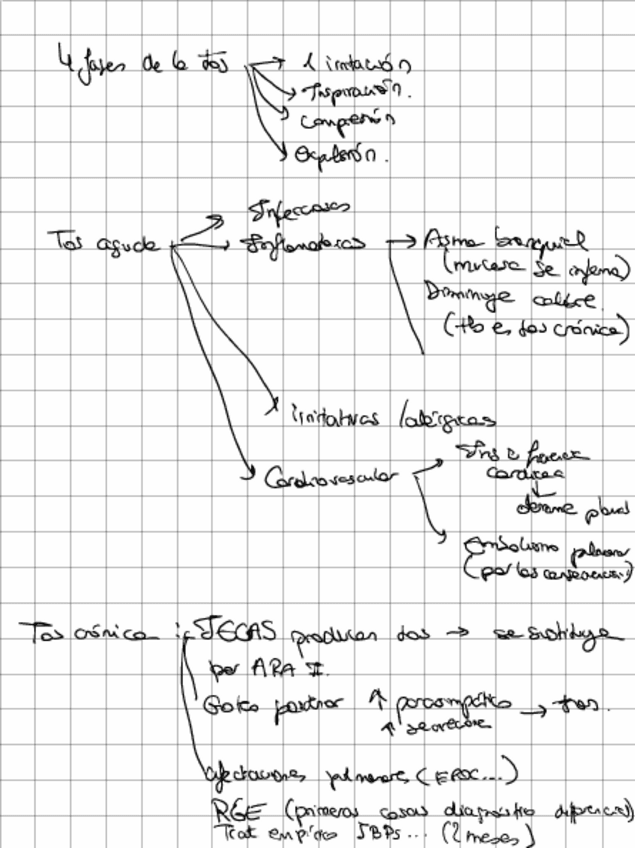 4 fases de la Tos → 1 irritación
Inspiración.
Compresión
Explosión.
Infecciosas
Tos aguda Inflamatorias → Asma bronquial
(mucosa se inflama)
Disminuye calibre
(tb es tos crónica)
irritativas / alérgicas
Cardiovascular Insuf
cardiaca
↓
derrame pleural
Embolismo pulmonar
(por las consecuencias)
Tos crónica : IECAS producen tos → se sustituye
por ARA II.
Goteo postnasal ↑ parasimpático → tos.
↑ secreción
afectaciones pulmonares (EPOC...)
RGE (primeras cosas diagnóstico diferencial)
Trat empírico IBPs... (2 meses)